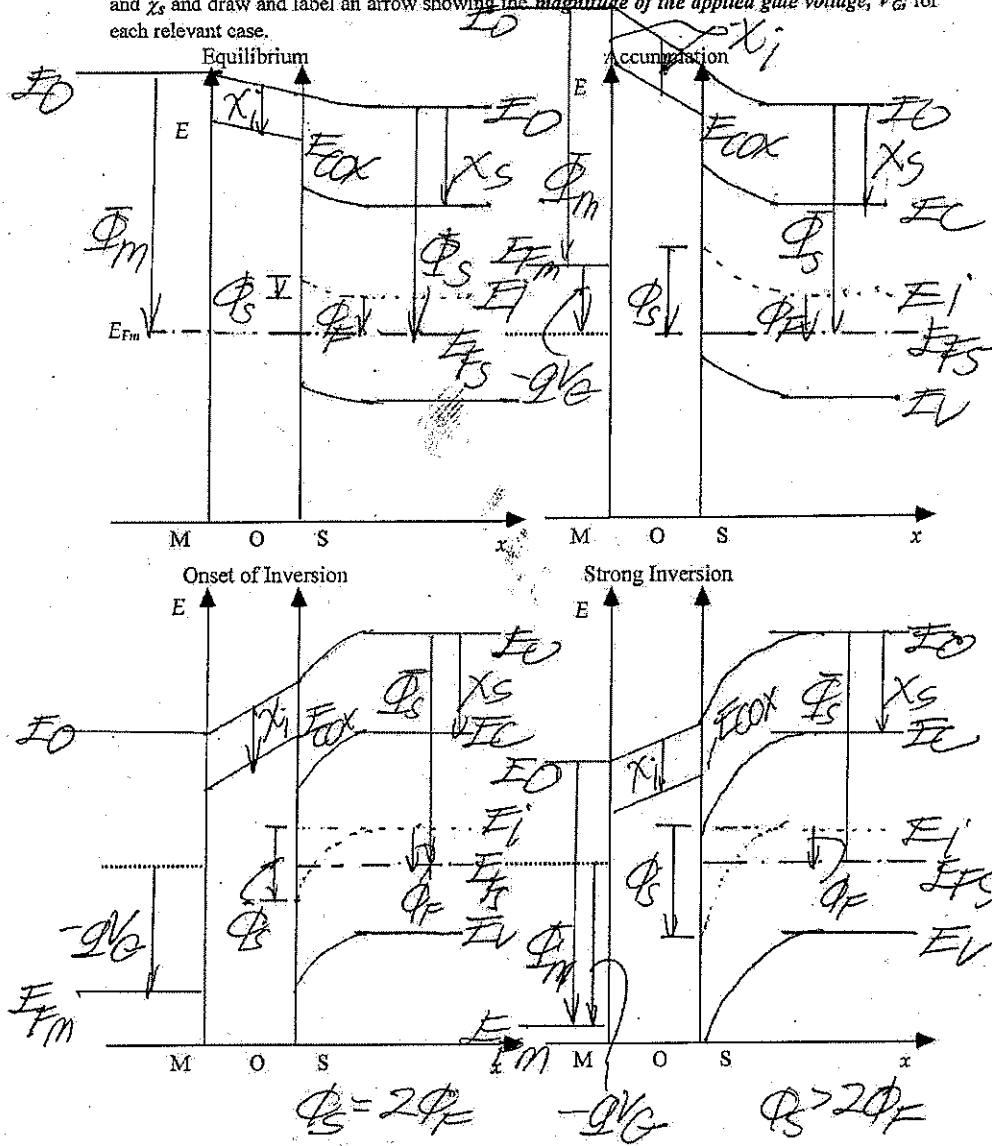 and χs and draw and label an arrow showing the magnitude of the applied gate voltage, VG, for
each relevant case.
Equilibrium
E0
E
χi
E0
ECOX
χS
ΦM
ΦS
ϕS
Ei
ϕF
EFm
EFS
M O S x
Accumulation
E0
χi
E
E0
ECOX
χS
Φm
EC
ΦS
EFm
ϕS
Ei
ϕF
EFS
-qVG
EV
M O S x
Onset of Inversion
E
χS
ΦS
E0
χi
ECOX
EC
Ei
ϕF
EFS
ϕS
EV
-qVG
EFm
M O S x
ϕS = 2ϕF
Strong Inversion
E
E0
ECOX
ΦS
χS
EC
E0
χi
Ei
ϕS
ϕF
EFS
Φm
EV
M O S x
-qVG
ϕS > 2ϕF